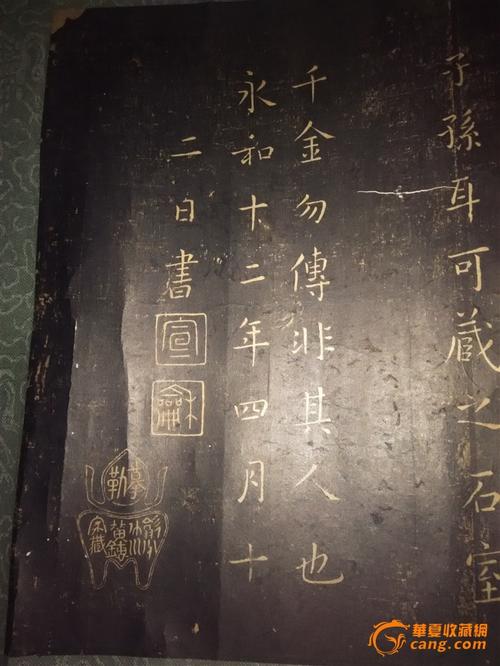 子孫耳可蔵之石室
千金勿傳非其人也
永和十二年四月十
二日書
宣
龢
摹勒
華夏收藏網
cang.com